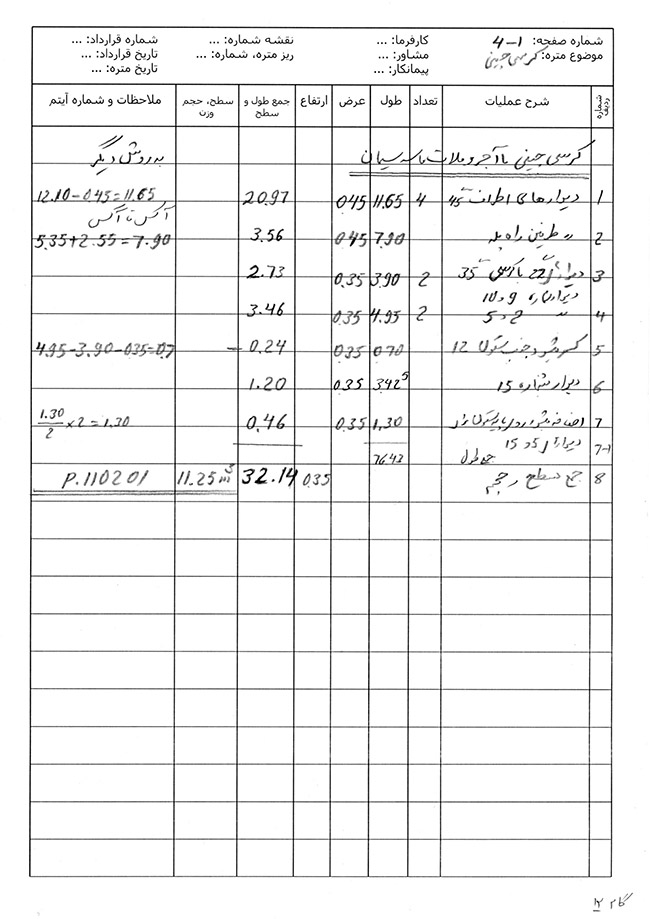 شماره صفحه: 4-1 کارفرما: ... نقشه شماره: ... شماره قرارداد: ...
موضوع متره: کرسی چینی مشاور: ... ریز متره، شماره: ... تاریخ قرارداد: ...
پیمانکار: ... تاریخ متره: ...
شماره ردیف شرح عملیات تعداد طول عرض ارتفاع جمع طول و سطح سطح، حجم وزن ملاحظات و شماره آیتم
کرسی چینی با آجر و ملات ماسه سیمان به روش دیگر
1 دیوارهای اطراف 45 4 11.65 0.45 20.97 12.10-0.45=11.65
آکس تا آکس
2 طرفین راه پله 7.90 0.45 3.56 5.35+2.55=7.90
3 22 35 2 3.90 0.35 2.73
دیوار 9 و 10
4 " 2 و 5 2 4.95 0.35 3.46
5 12 0.70 0.35 - 0.24 4.95-3.90-0.35=0.7
6 دیوار شماره 15 3.42 5 0.35 1.20
7 1.30 0.35 0.46 1.30/2 ×2=1.30
7-1 15 جمع طول 76.42
8 جمع سطح و حجم 0.35 32.14 11.25 م³ P.110201